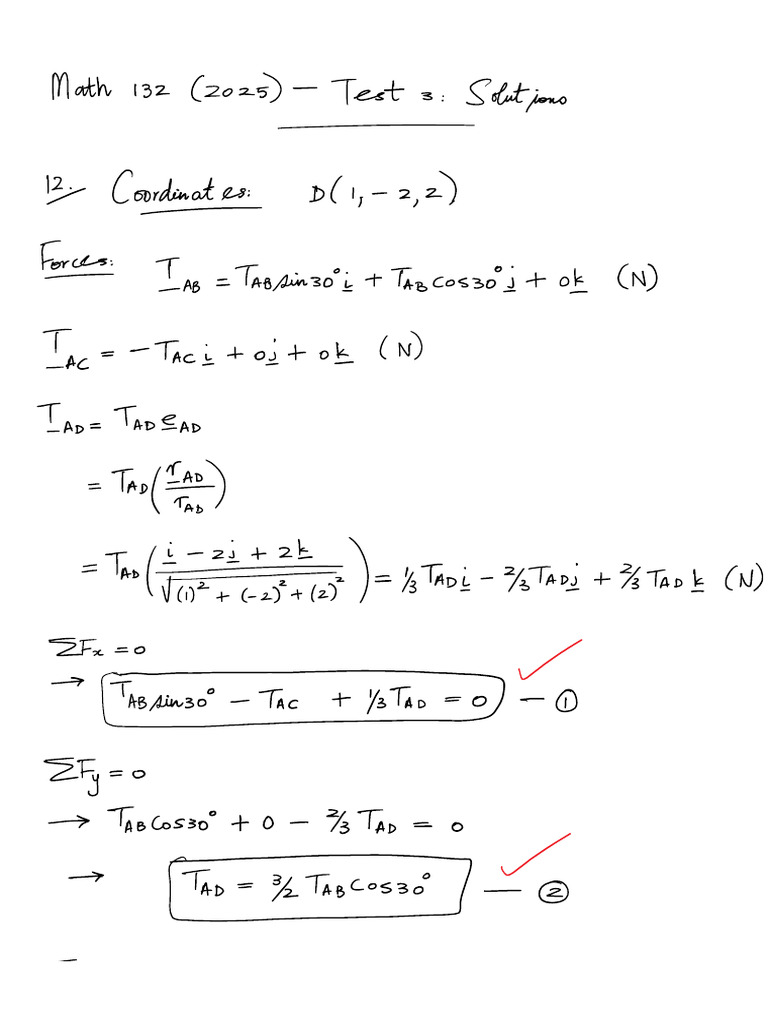 Math 132 (2025) – Test 3: Solutions
12. Coordinates: D(1, -2, 2)
Forces: T_AB = T_AB sin30° i + T_AB cos30° j + 0k (N)
T_AC = -T_AC i + 0j + 0k (N)
T_AD = T_AD e_AD
= T_AD (r_AD / r_AD)
= T_AD ( (i - 2j + 2k) / √((1)² + (-2)² + (2)²) ) = 1/3 T_AD i - 2/3 T_AD j + 2/3 T_AD k (N)
ΣFx = 0
→ T_AB sin30° - T_AC + 1/3 T_AD = 0 — ①
ΣFy = 0
→ T_AB cos30° + 0 - 2/3 T_AD = 0
→ T_AD = 3/2 T_AB cos30° — ②